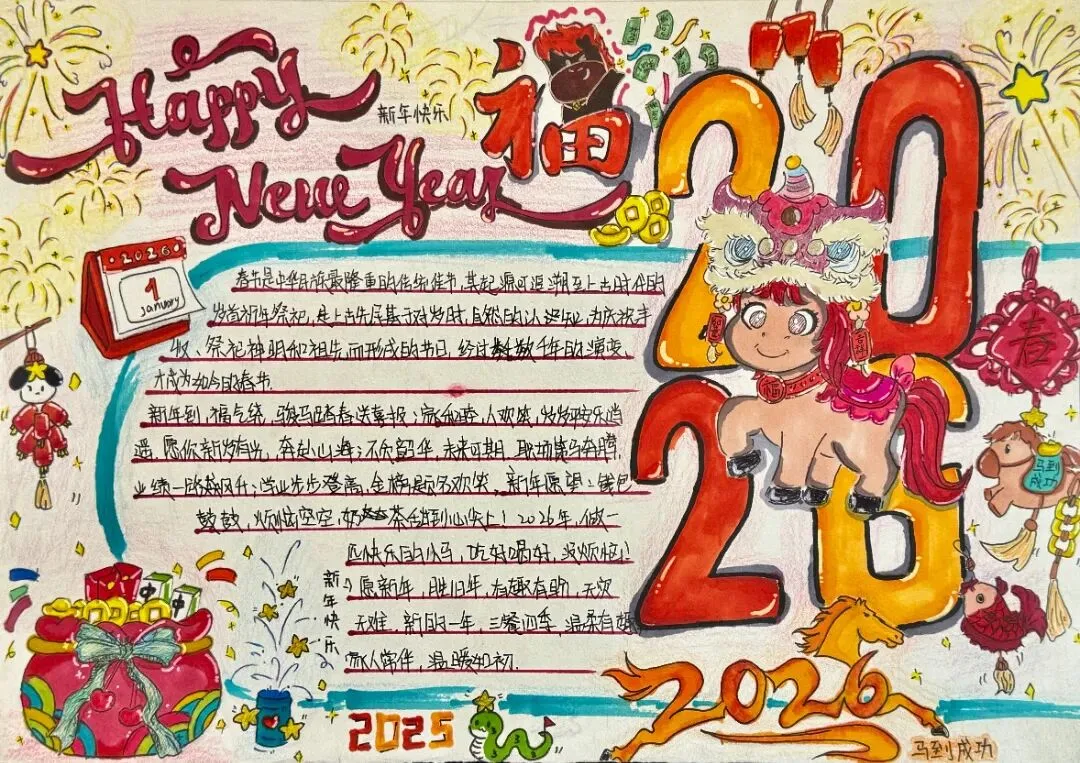 Happy
新年快乐
New Year
福
2026
2026
1
January
春节是中华民族最隆重的传统佳节,其起源可追溯至上古时代的
岁首祈年祭祀,是上古先民基于对岁时、自然的认知,为庆祝丰
收、祭祀神明和祖先而形成的节日,经过数千年的演变,
才成为如今的春节.
新年到,福气绕,骏马踏春送喜报;家和睦,人欢笑,岁岁平安乐逍
遥,愿你新岁有光,奔赴山海;不负韶华,未来可期,
业绩一路乘风升;学业步步登高,金榜题名欢笑,新年愿望:钱包
鼓鼓,烦恼空空,奶茶甜到心尖上!2026年,做一
匹快乐的小马,吃好喝好,没烦恼!
愿新年,胜旧年,有趣有盼,无灾
无难.新的一年,三餐四季,温柔有趣
家人常伴,温暖如初.
新年快乐
春
马到
成功
福
吉祥
中
2025
2026
马到成功